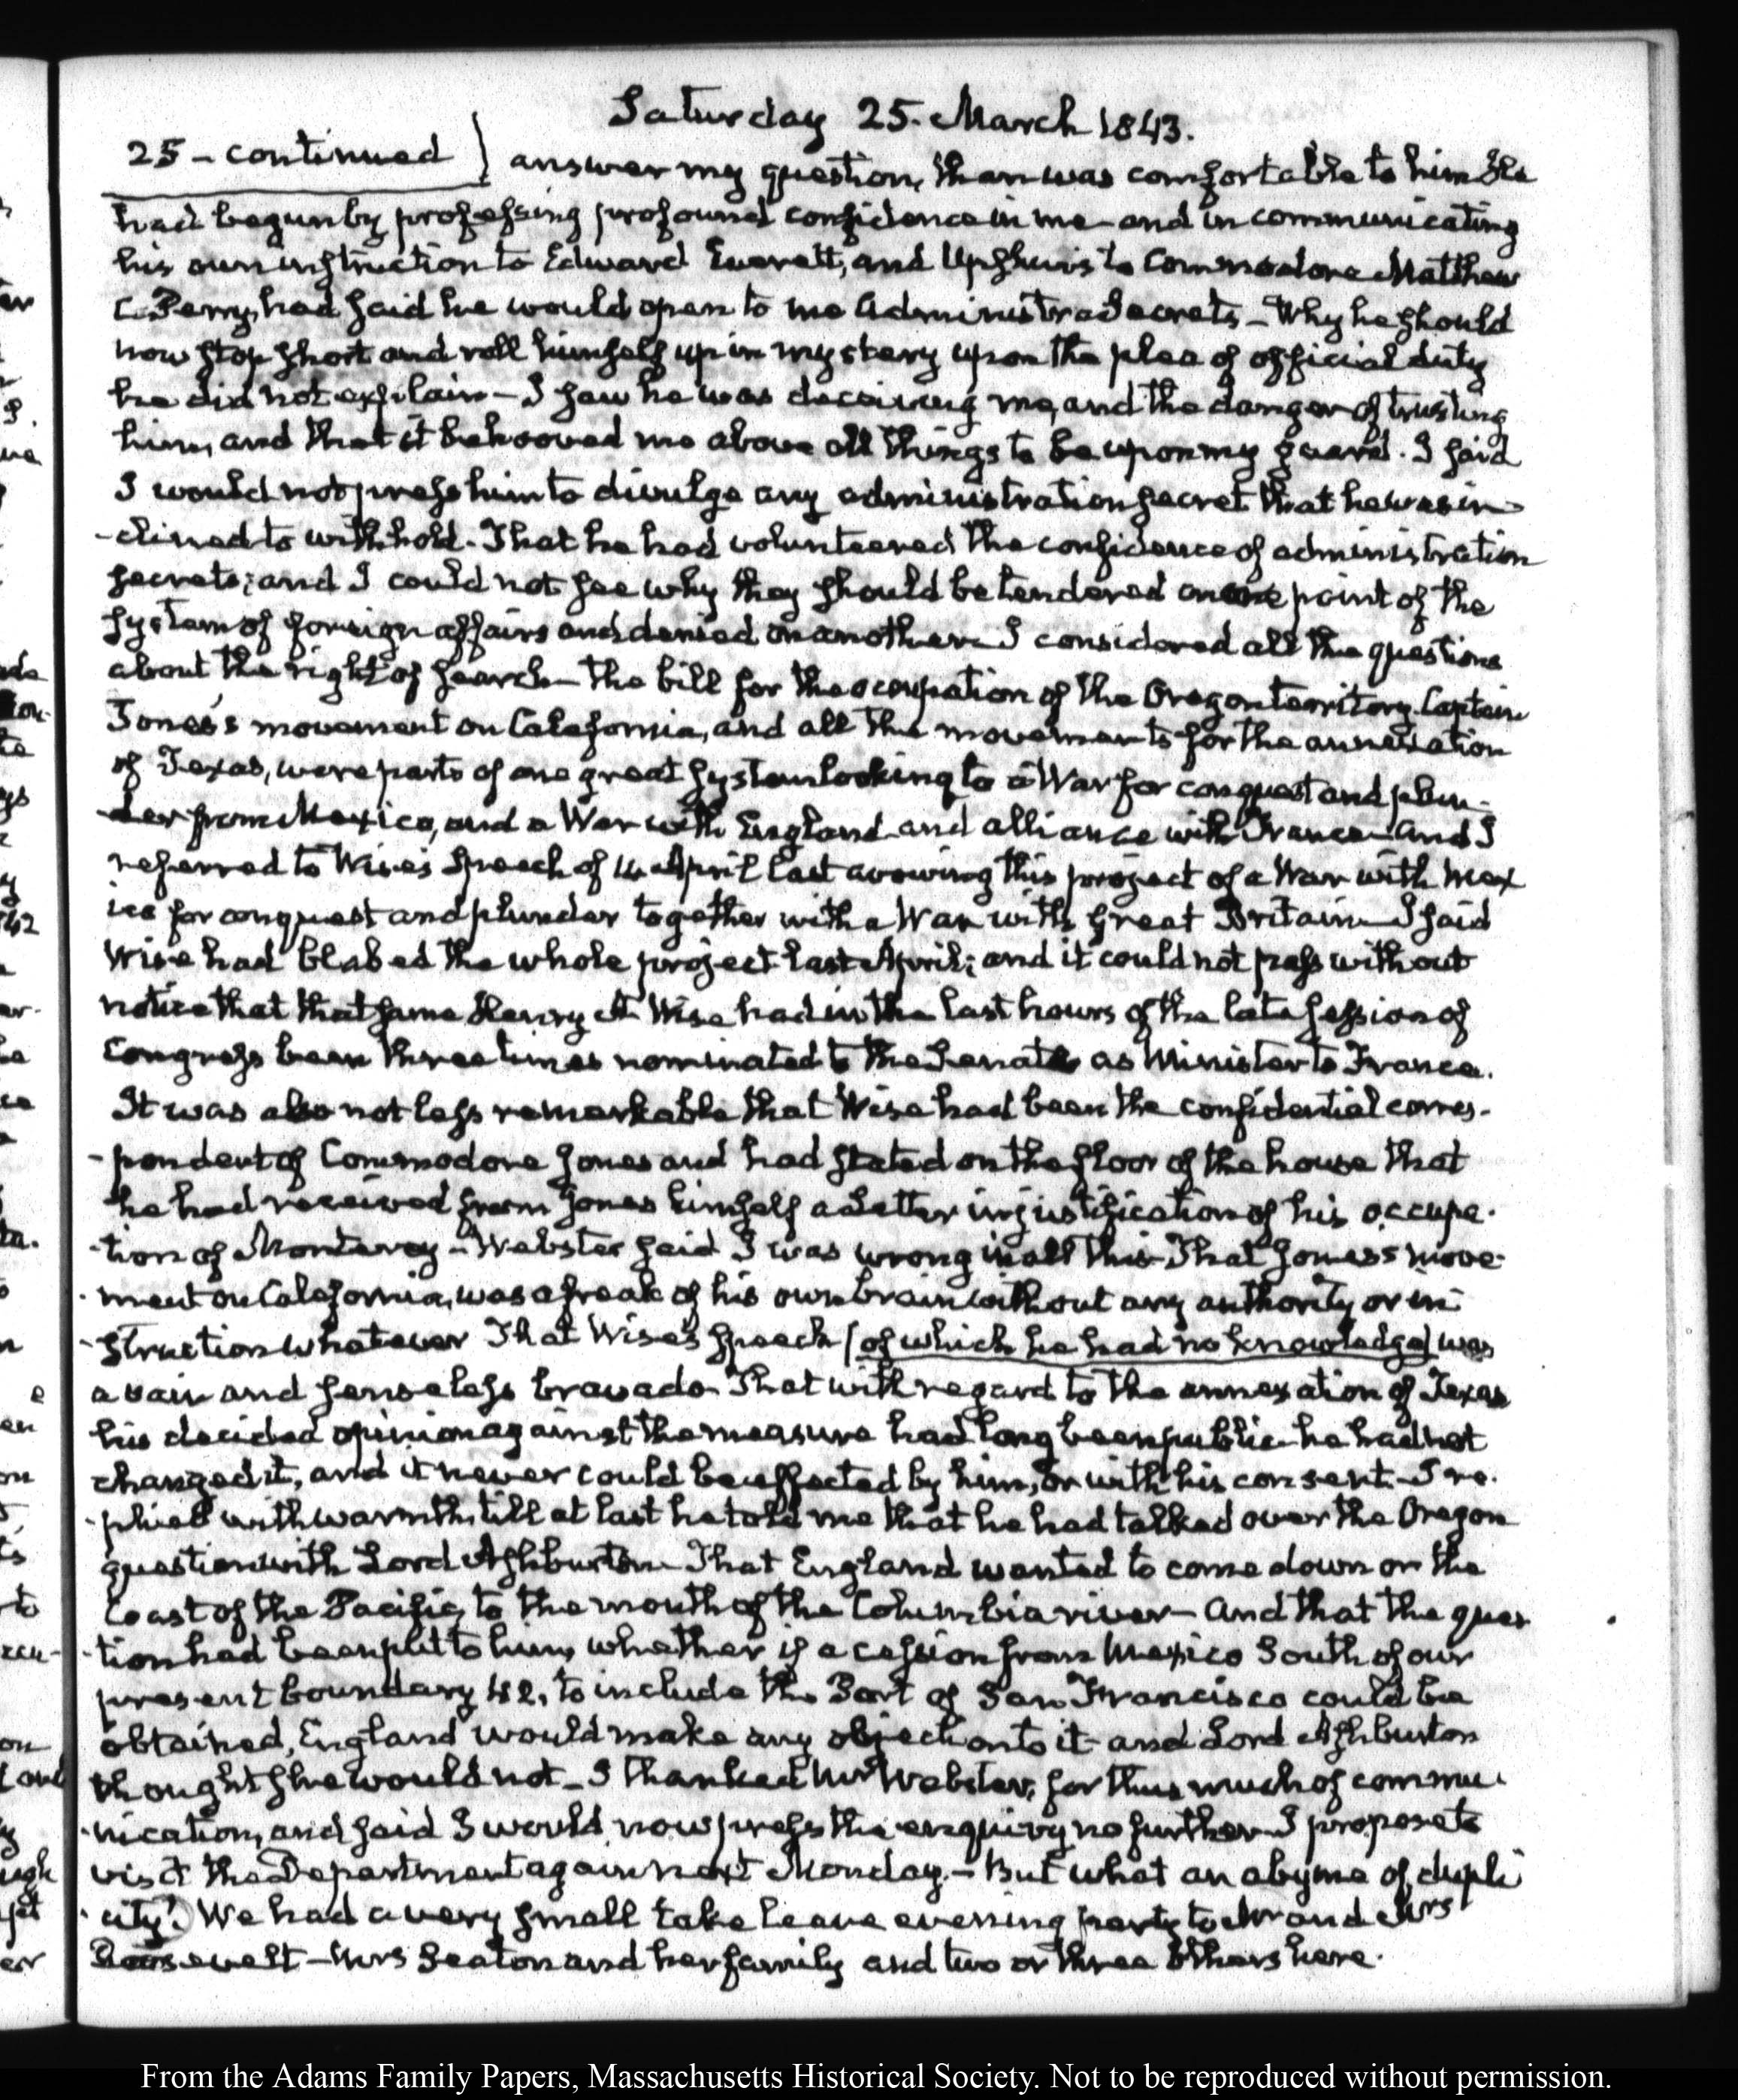 Saturday 25. March 1843.
25 - continued } answer my question, than was comfortable to him He
had begun by professing profound confidence in me - and in communicating
his own instruction to Edward Everett, and Upshur's to Commodore Matthew
C. Perry, had said he would open to me Administra Secrets - Why he should
now stop short and roll himself up in mystery upon the plea of official duty
he did not explain - I saw he was deceiving me, and the danger of trusting
him, and that it behooved me above all things to be upon my guard. I said
I would not press him to divulge any administration secret that he was in-
-clined to withhold. That he had volunteered the confidence of administration
secrets; and I could not see why they should be tendered on one point of the
system of foreign affairs and denied on another I considered all the questions
about the right of search - the bill for the occupation of the Oregon territory. Captain
Jones's movement on California, and all the movements for the annexation
of Texas, were parts of one great system looking to a War for conquest and plun-
-der from Mexico, and a War with England and alliance with France - And I
referred to Wise's Speech of 14 April last avowing this project of a War with Mex
ico for conquest and plunder together with a War with Great Britain - I said
Wise had blabed the whole project last April; and it could not pass without
notice that that same Henry A Wise had in the last hours of the late session of
Congress been three times nominated to the Senate as Minister to France.
It was also not less remarkable that Wise had been the confidential corres-
-pondent of Commodore Jones and had stated on the floor of the house that
he had received from Jones himself a Letter in justification of his occupa-
-tion of Monterey - Webster said I was wrong in all this - That Jones's move-
-ment on California, was a freak of his own brain without any authority or in
-struction whatever That Wise's Speech (of which he had no knowledge) was
a vain and senseless bravado - That with regard to the annexation of Texas
his decided opinion against the measure had long been public - he had not
changed it, and it never could be effected by him, or with his consent - I re-
-plied with warmth, till at last he told me that he had talked over the Oregon
question with Lord Ashburton - That England wanted to come down on the
Coast of the Pacific, to the mouth of the Columbia river - And that the ques
-tion had been put to him, whether if a cession from Mexico South of our
present boundary 42, to include the Port of San Francisco could be
obtained, England would make any objection to it - and Lord Ashburton
thought she would not - I thanked Mr Webster, for thus much of commu-
-nication, and said I would now press the enquiry no further I propose to
visit the Department again next Monday. - But what an abyme of dupli
-city! We had a very small take leave evening party to Mr and Mrs
Roosevelt - Mrs Seaton and her family and two or three others here.
From the Adams Family Papers, Massachusetts Historical Society. Not to be reproduced without permission.